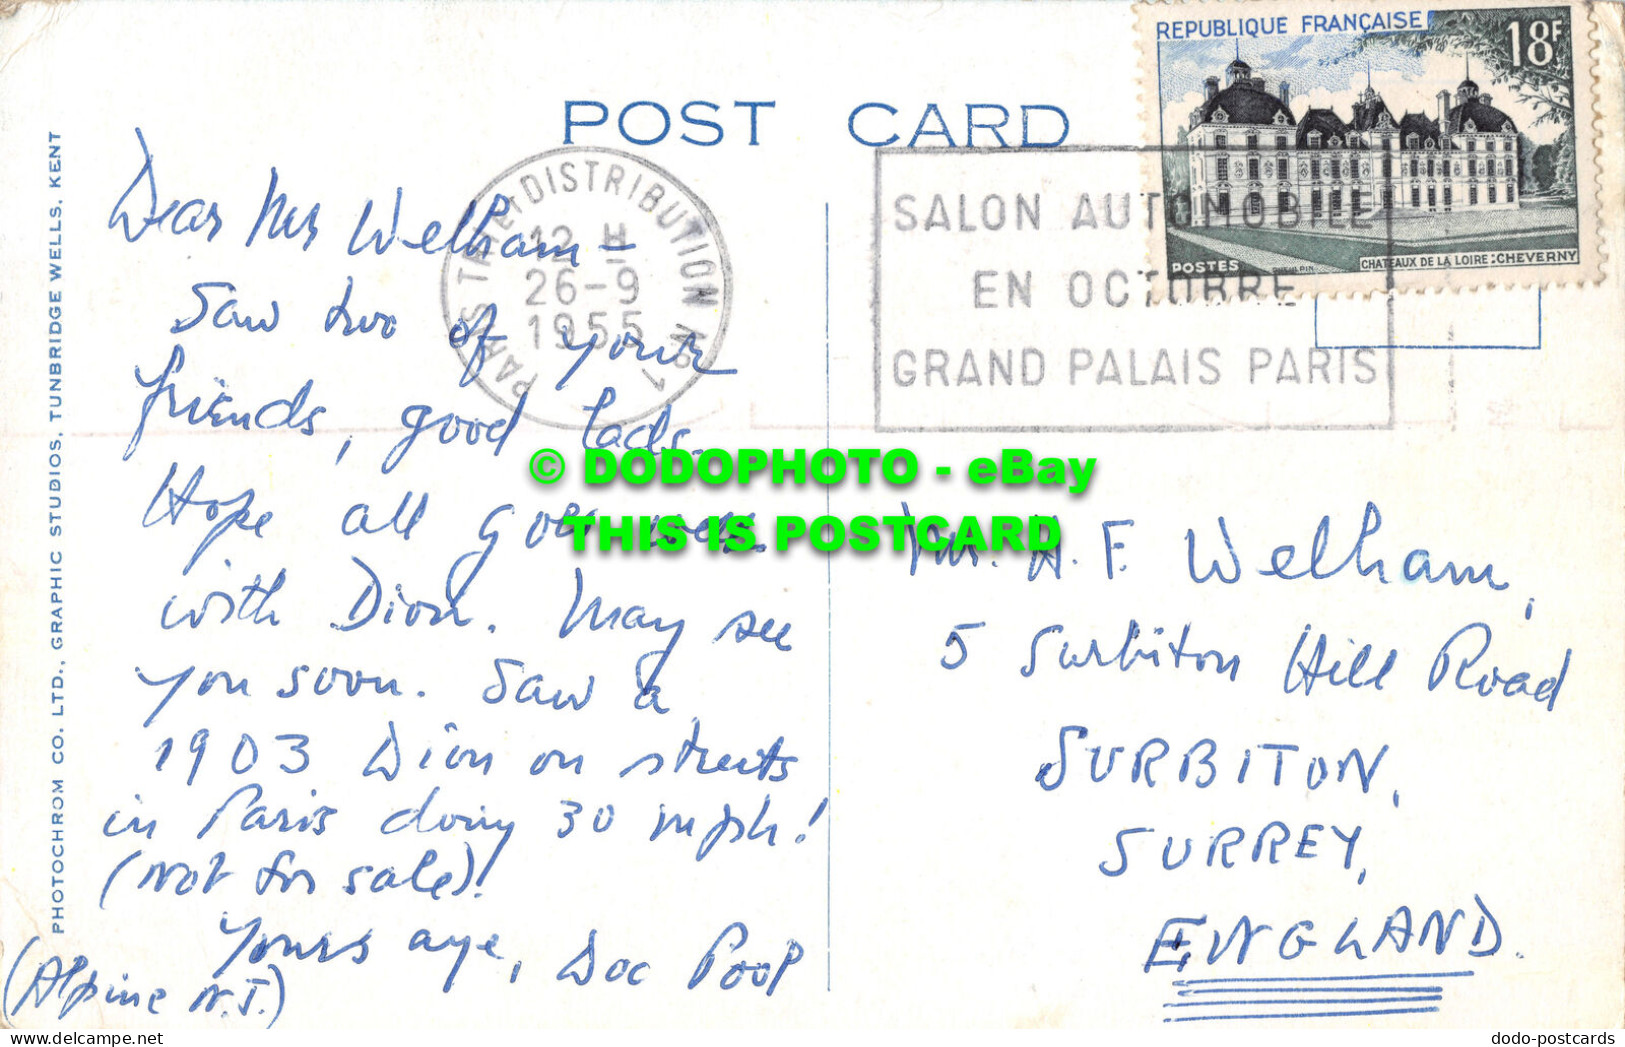 REPUBLIQUE FRANÇAISE
18F
POST CARD
PARIS TRI ET DISTRIBUTION No 1
12 H
26-9
1955
SALON AUTOMOBILE
EN OCTOBRE
GRAND PALAIS PARIS
POSTES
CHATEAUX DE LA LOIRE: CHEVERNY
PHOTOCHROM CO. LTD., GRAPHIC STUDIOS, TUNBRIDGE WELLS, KENT
Dear Mr Welham –
Saw two of your
friends, good lads.
Hope all goes well
with Dion. May see
you soon. Saw a
1903 Dion on streets
in Paris doing 30 mph!
(not for sale)!
Yours aye, Doc Pool
(Alpine N.J.)
© DODOPHOTO - eBay
THIS IS POSTCARD
Mr. H. F. Welham,
5 Surbiton Hill Road
SURBITON,
SURREY,
ENGLAND.
dodo-postcards